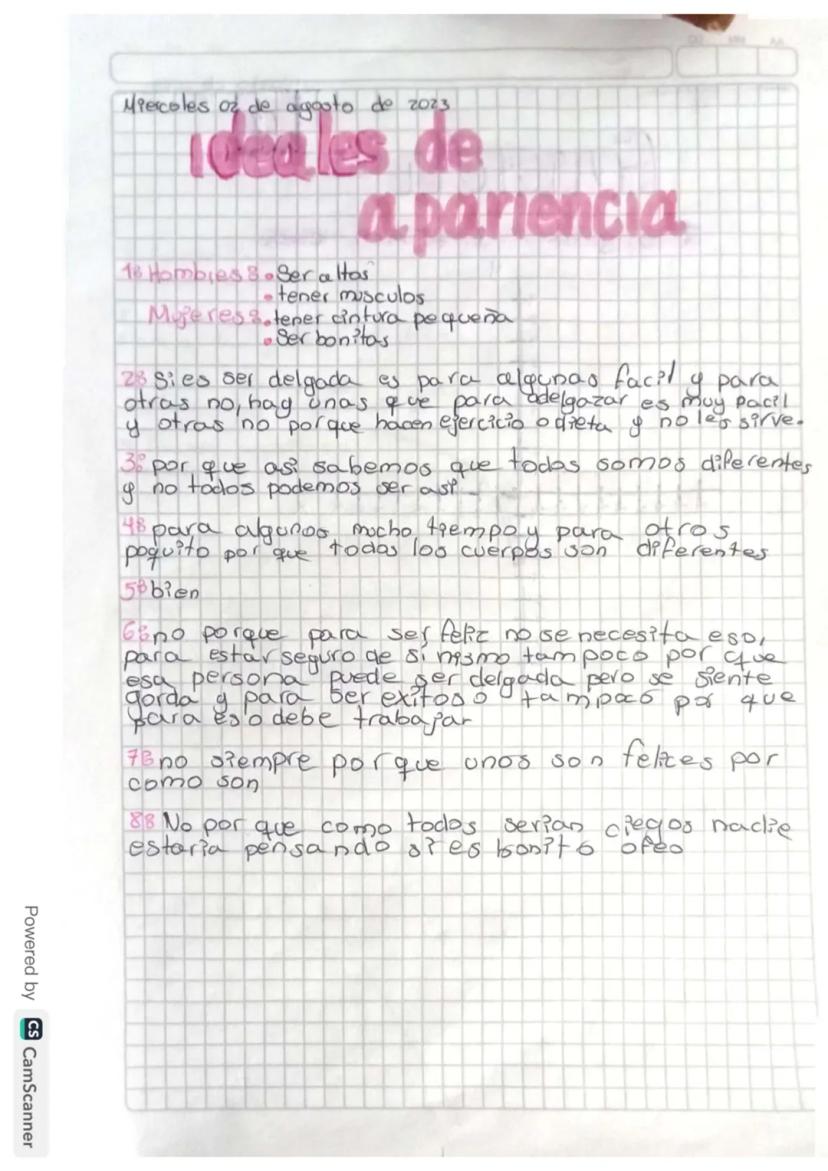 DD MM AA
Miercoles 02 de agosto de 2023
Ideales de
apariencia
1: Hombres: • Ser altos
• tener musculos
Mujeres: • tener cintura pequeña
• Ser bonitas
2: Si es ser delgada es para algunas facil y para
otras no, hay unas que para adelgazar es muy facil
y otras no porque hacen ejercicio o dieta y no les sirve.
3: por que asi sabemos que todos somos diferentes
y no todos podemos ser asi
4: para algunos mucho tiempo y para otros
poquito por que todos los cuerpos son diferentes
5: bien
6: no porque para ser feliz no se necesita eso,
para estar seguro de si mismo tampoco por que
esa persona puede ser delgada pero se siente
gorda y para ser exitoso tampoco por que
para eso debe trabajar
7: no siempre porque unos son felices por
como son
8: No por que como todos serian ciegos nadie
estaria pensando si es bonito o feo
Powered by CS CamScanner